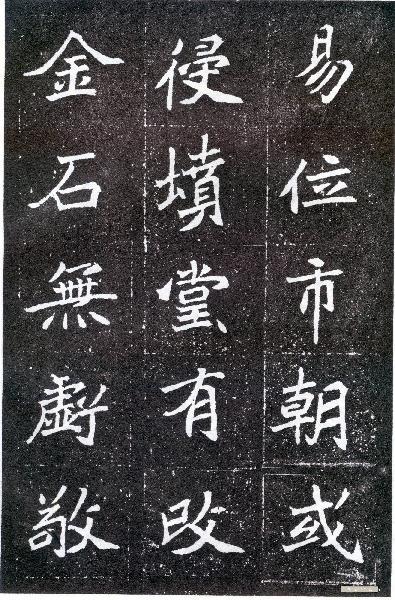 易位市朝或
侵墳堂有改
金石無虧敬